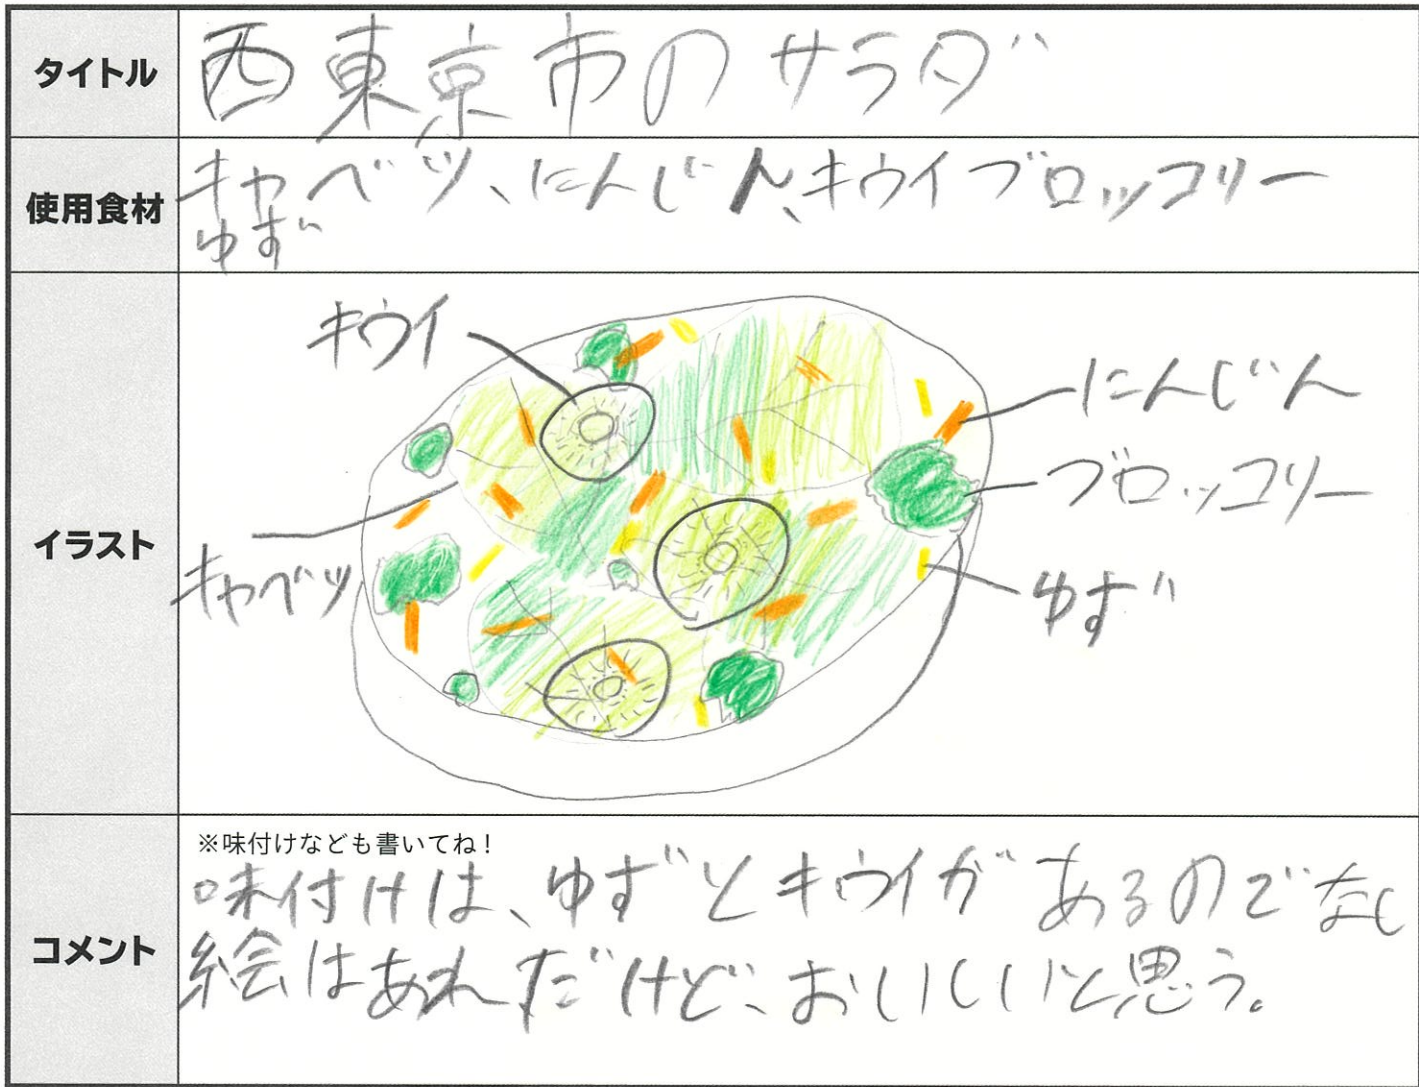 タイトル
西東京市のサラダ
使用食材
キャベツ、にんじん、キウイブロッコリー
ゆず
イラスト
キウイ
にんじん
ブロッコリー
キャベツ
ゆず
コメント
※味付けなども書いてね!
味付けは、ゆずとキウイがあるのでなし
絵はあれだけど、おいしいと思う。